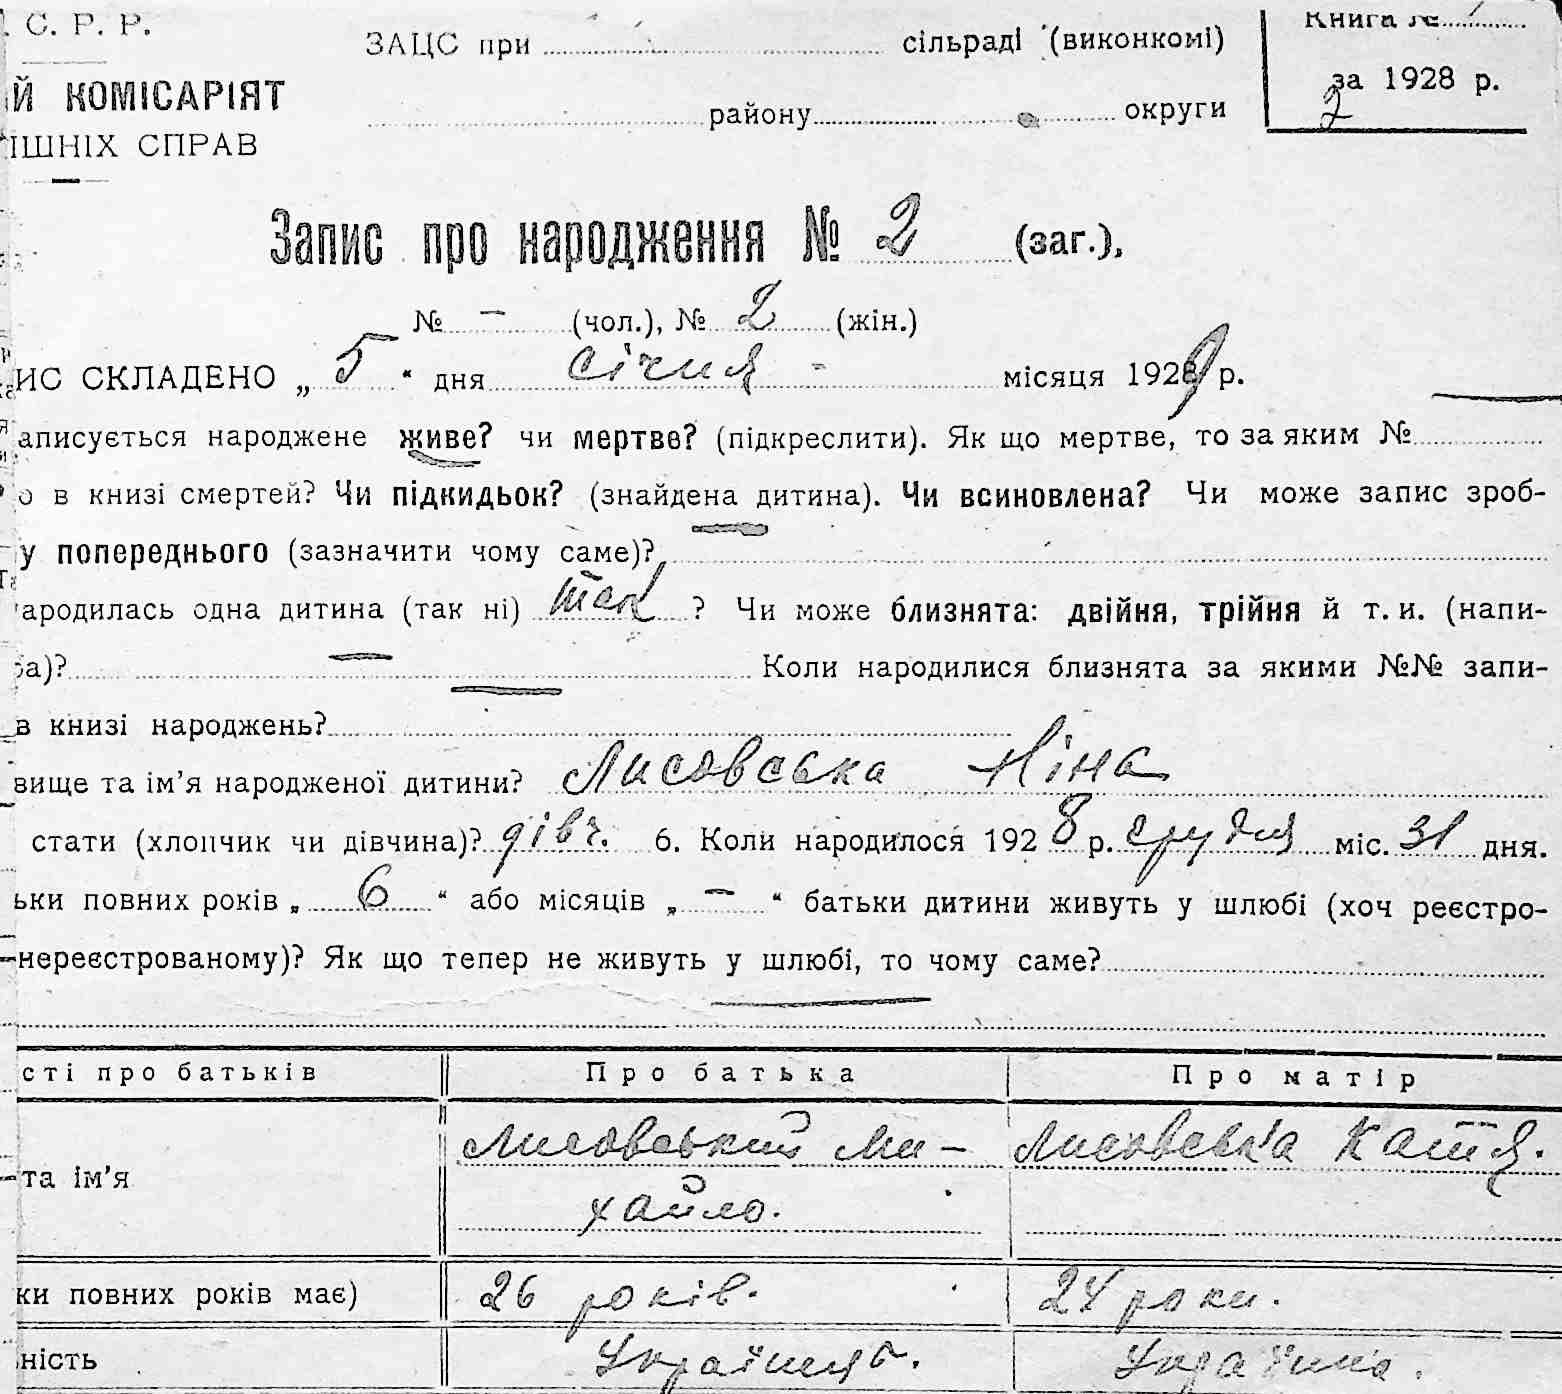 С. Р. Р.
ЗАЦС при сільраді (виконкомі)
Книга №
Й КОМІСАРІЯТ
за 1928 р.
району округи
2
ІШНІХ СПРАВ
Запис про народження № 2 (заг.),
№ — (чол.), № 2 (жін.)
ИС СКЛАДЕНО „ 5 “ дня січня - місяця 1929 р.
аписується народжене живе? чи мертве? (підкреслити). Як що мертве, то за яким №
о в книзі смертей? Чи підкидьок? (знайдена дитина). Чи всиновлена? Чи може запис зроб-
у попереднього (зазначити чому саме)?
ародилась одна дитина (так ні) так ? Чи може близнята: двійня, трійня й т. и. (напи-
ба)? — Коли народилися близнята за якими №№ запи-
в книзі народжень?
вище та ім’я народженої дитини? Лисовська Ніна
стати (хлопчик чи дівчина)? дівч. 6. Коли народилося 1928 р. грудня міс. 31 дня.
ьки повних років „ 6 “ або місяців „ — “ батьки дитини живуть у шлюбі (хоч реєстро-
нереєстрованому)? Як що тепер не живуть у шлюбі, то чому саме?
сті про батьків Про батька Про матір
та ім’я Лисовський Ми- Лисовська Катя.
хайло.
ки повних років має) 26 років. 24 роки.
ність Українець. Українка.